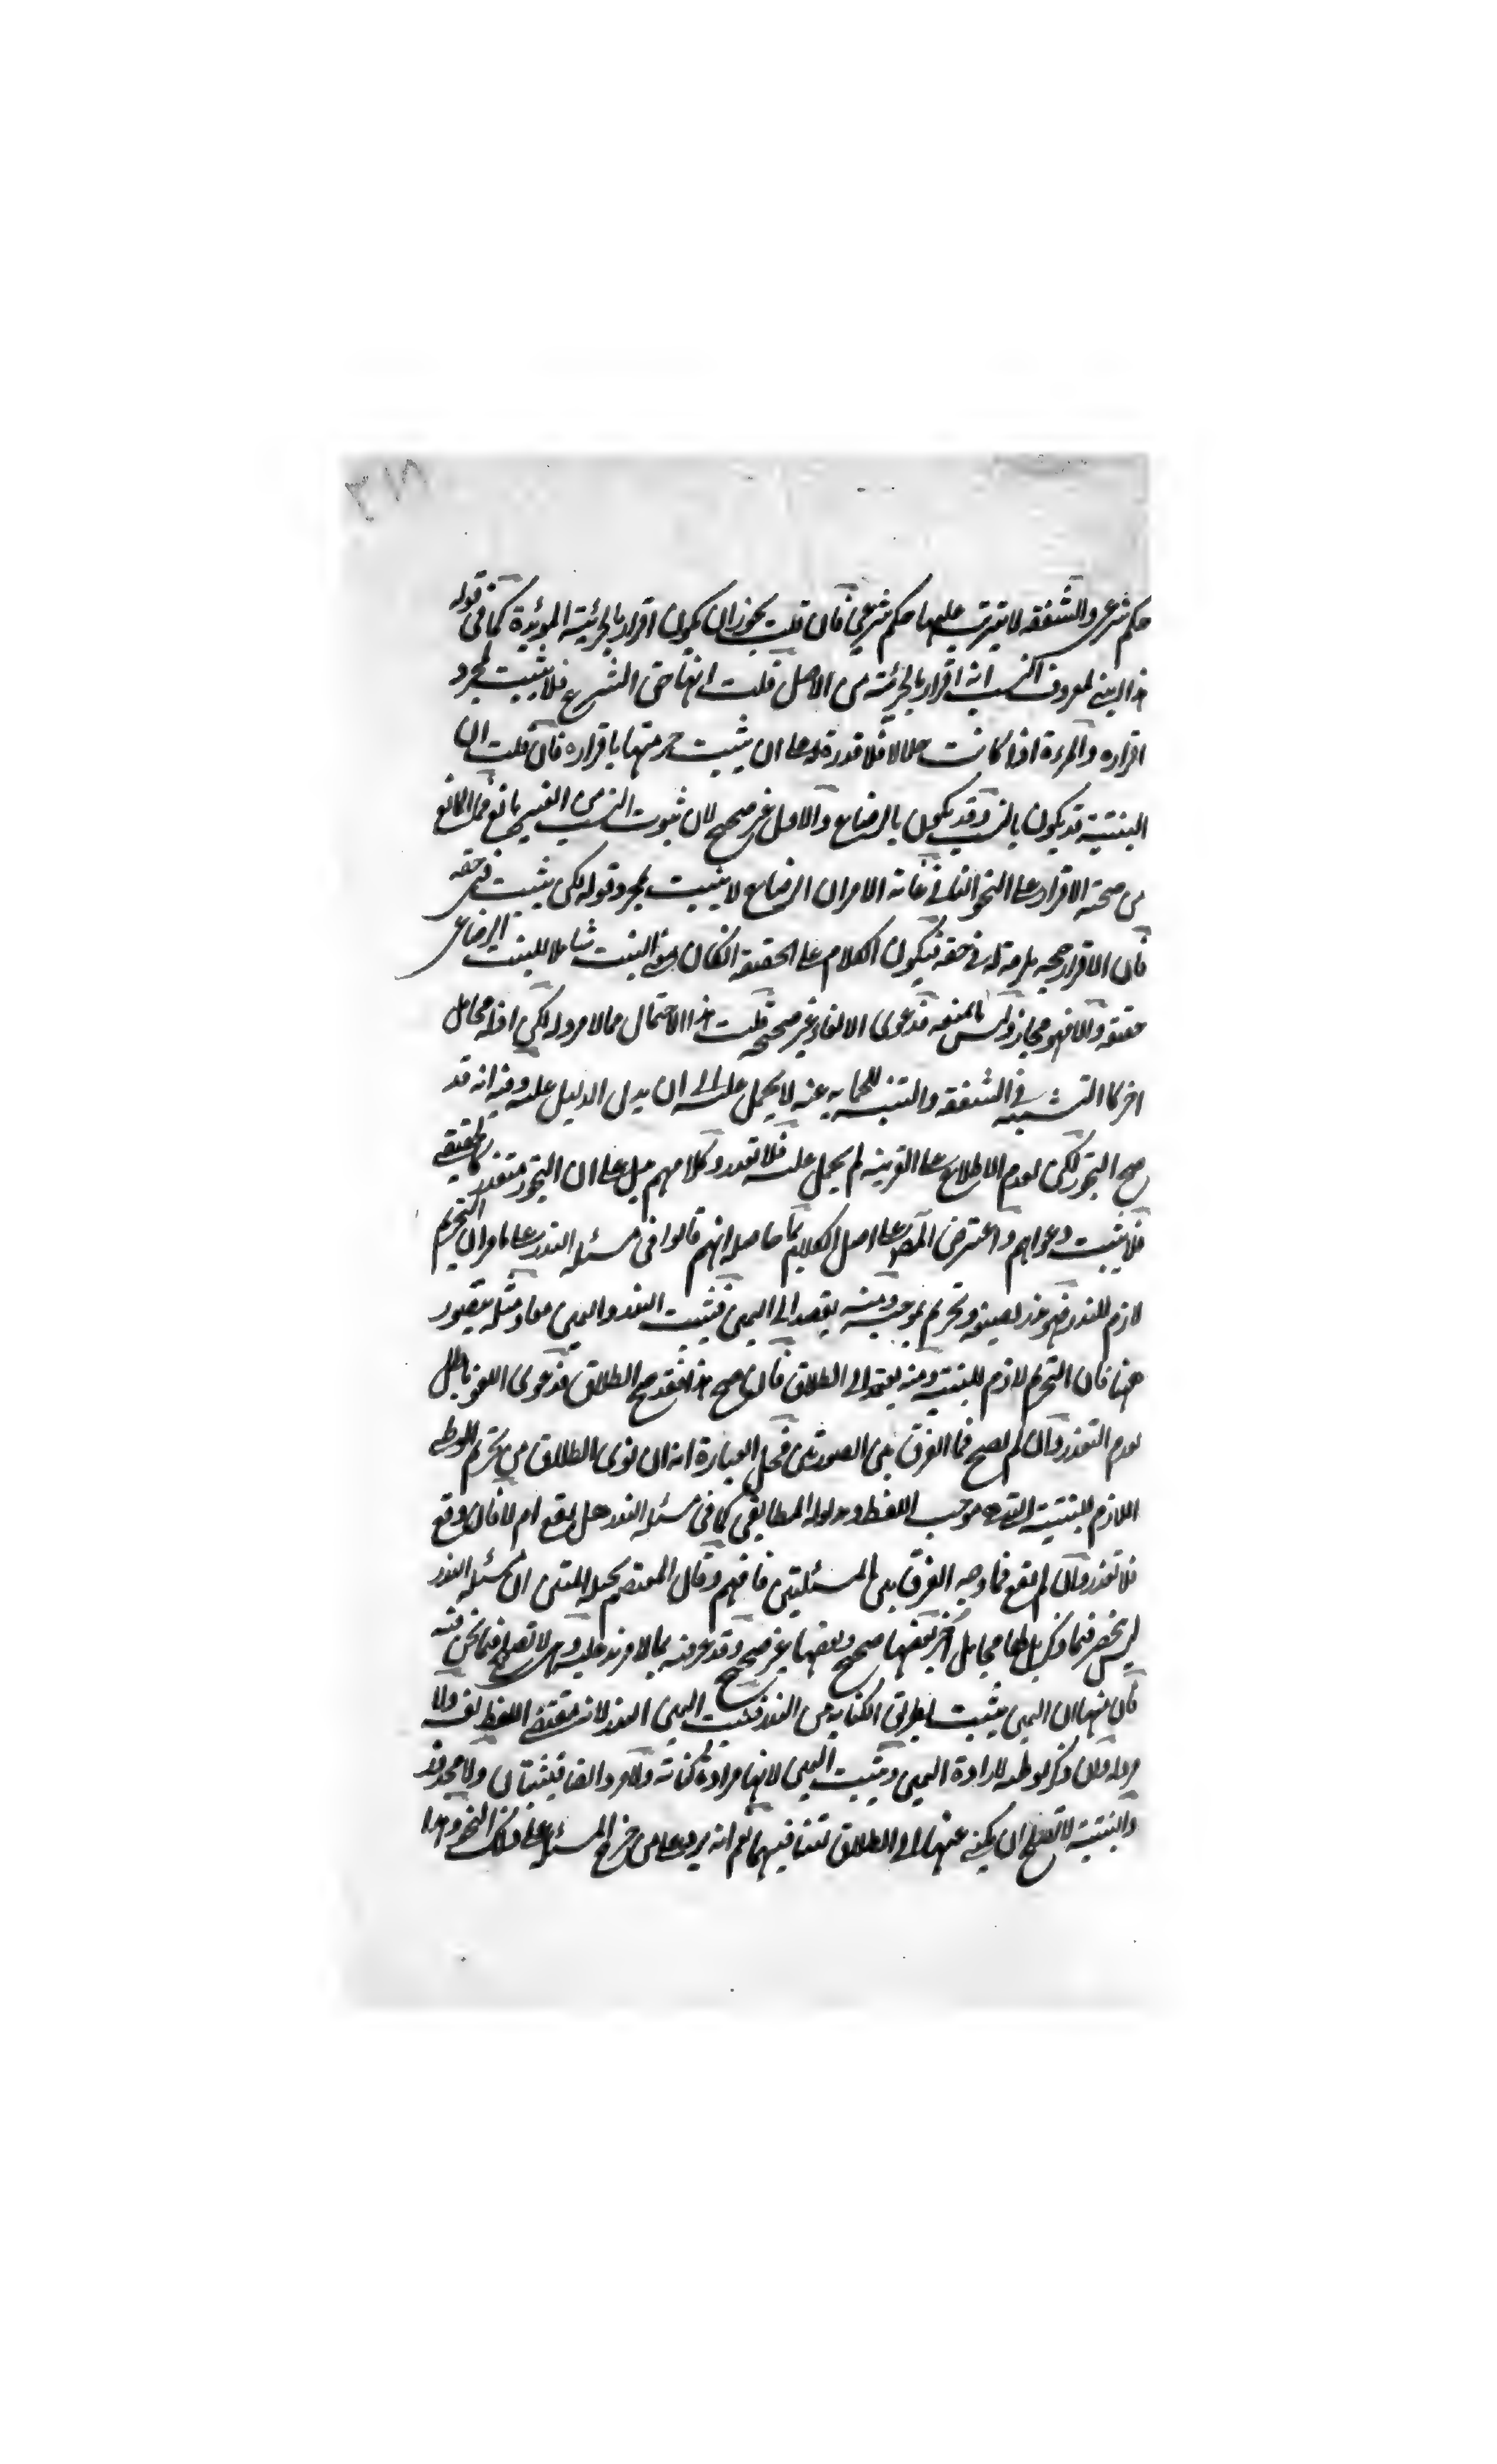 ٣١٨
حكم شرعي والشفقة لا يترتب عليها حكم شرعي فان قلت يجوز ان يكون اقرارا بالجزئية المؤبدة كما في قوله
هذا ابني لمعروف النسب انه اقرار بالجزئية من الاصل قلت انها حق الشرع فلا يثبت بمجرد
اقراره والمرءة اذا كانت حلالا فلا قدرة له على ان يثبت حرمتها باقراره فان قلت ان
البنتية قد يكون بالنسب وقد يكون بالرضاع والاول غير صحيح لان ثبوت النسب من الغير مانع فما المانع
من صحة الاقرار على النحو الثاني غاية الامر ان الرضاع لا يثبت بمجرد قوله لكن يثبت في حقه
فان الاقرار حجة ملزمة له في حقه فيكون الكلام على الحقيقة ان كان معنى البنت شاملا للبنت الرضاعي
حقيقة والا فهو مجاز وليس بالممتنعة فدعوى الالغاء غير صحيحة قلت هذا الاحتمال مما لا مرد له لكن اذا له محامل
اخر كالتشبيه في الشفقة والتنبيه للحماية عنه لا يحمل عليه الى ان يدل الدليل عليه وفيه انه قد
صح التجوز لكن لعدم الاطلاع على القرينة لم يحمل عليه فلا تعذر وكلامهم يدل على ان التجوز متعذر كالحقيقي
فلا يثبت دعواهم واعترض المص على اصل الكلام بما حاصله انهم قالوا في مسئلة النذر على ما مر ان التحريم
لازم للنذر فهو نذر بصيغته وتحريم بموجبه ومنه يقصد الى اليمين فيثبت النذر واليمين معا ومثله يتصور
ههنا فان التحريم لازم للبنتية ومنه يعتمد الى الطلاق فان صح هذا فقد صح الطلاق فدعوى اللغو باطل
لعدم التعذر وان لم يصح فما الفرق بين الصورتين فحل العبارة انه ان نوى الطلاق من تحريم الوطي
اللازم للبنتية التي هو موجب اللفظ ومدلوله المطابقي كما في مسئلة النذر هل يقع ام لا فان وقع
فلا تعذر وان لم يقع فما وجه الفرق بين المسئلتين فافهم وقال المعتصم بحبله المتين ان مسئلة النذر
ليس تنحصر فيما ذكر بل لها محامل اخر بعضها صحيح وبعضها غير صحيح وقد عرفته بما لا مزيد عليه وهي لا تصلح فيما نحن فيه
فان منها ان اليمين يثبت بطريق الكناية من النذر فيثبت اليمين النذر لانه مقتضى اللفظ
مراد وان ذكر توطئة لارادة اليمين ويثبت اليمين لانها مرادة كناية والمراد ايضا فيثبتان ولا محذور
والبنتية لا تصلح ان يكنى عنها الى الطلاق لتنافيهما نعم انه يرد على من خرج المسئلة على ذلك النحو وهذا